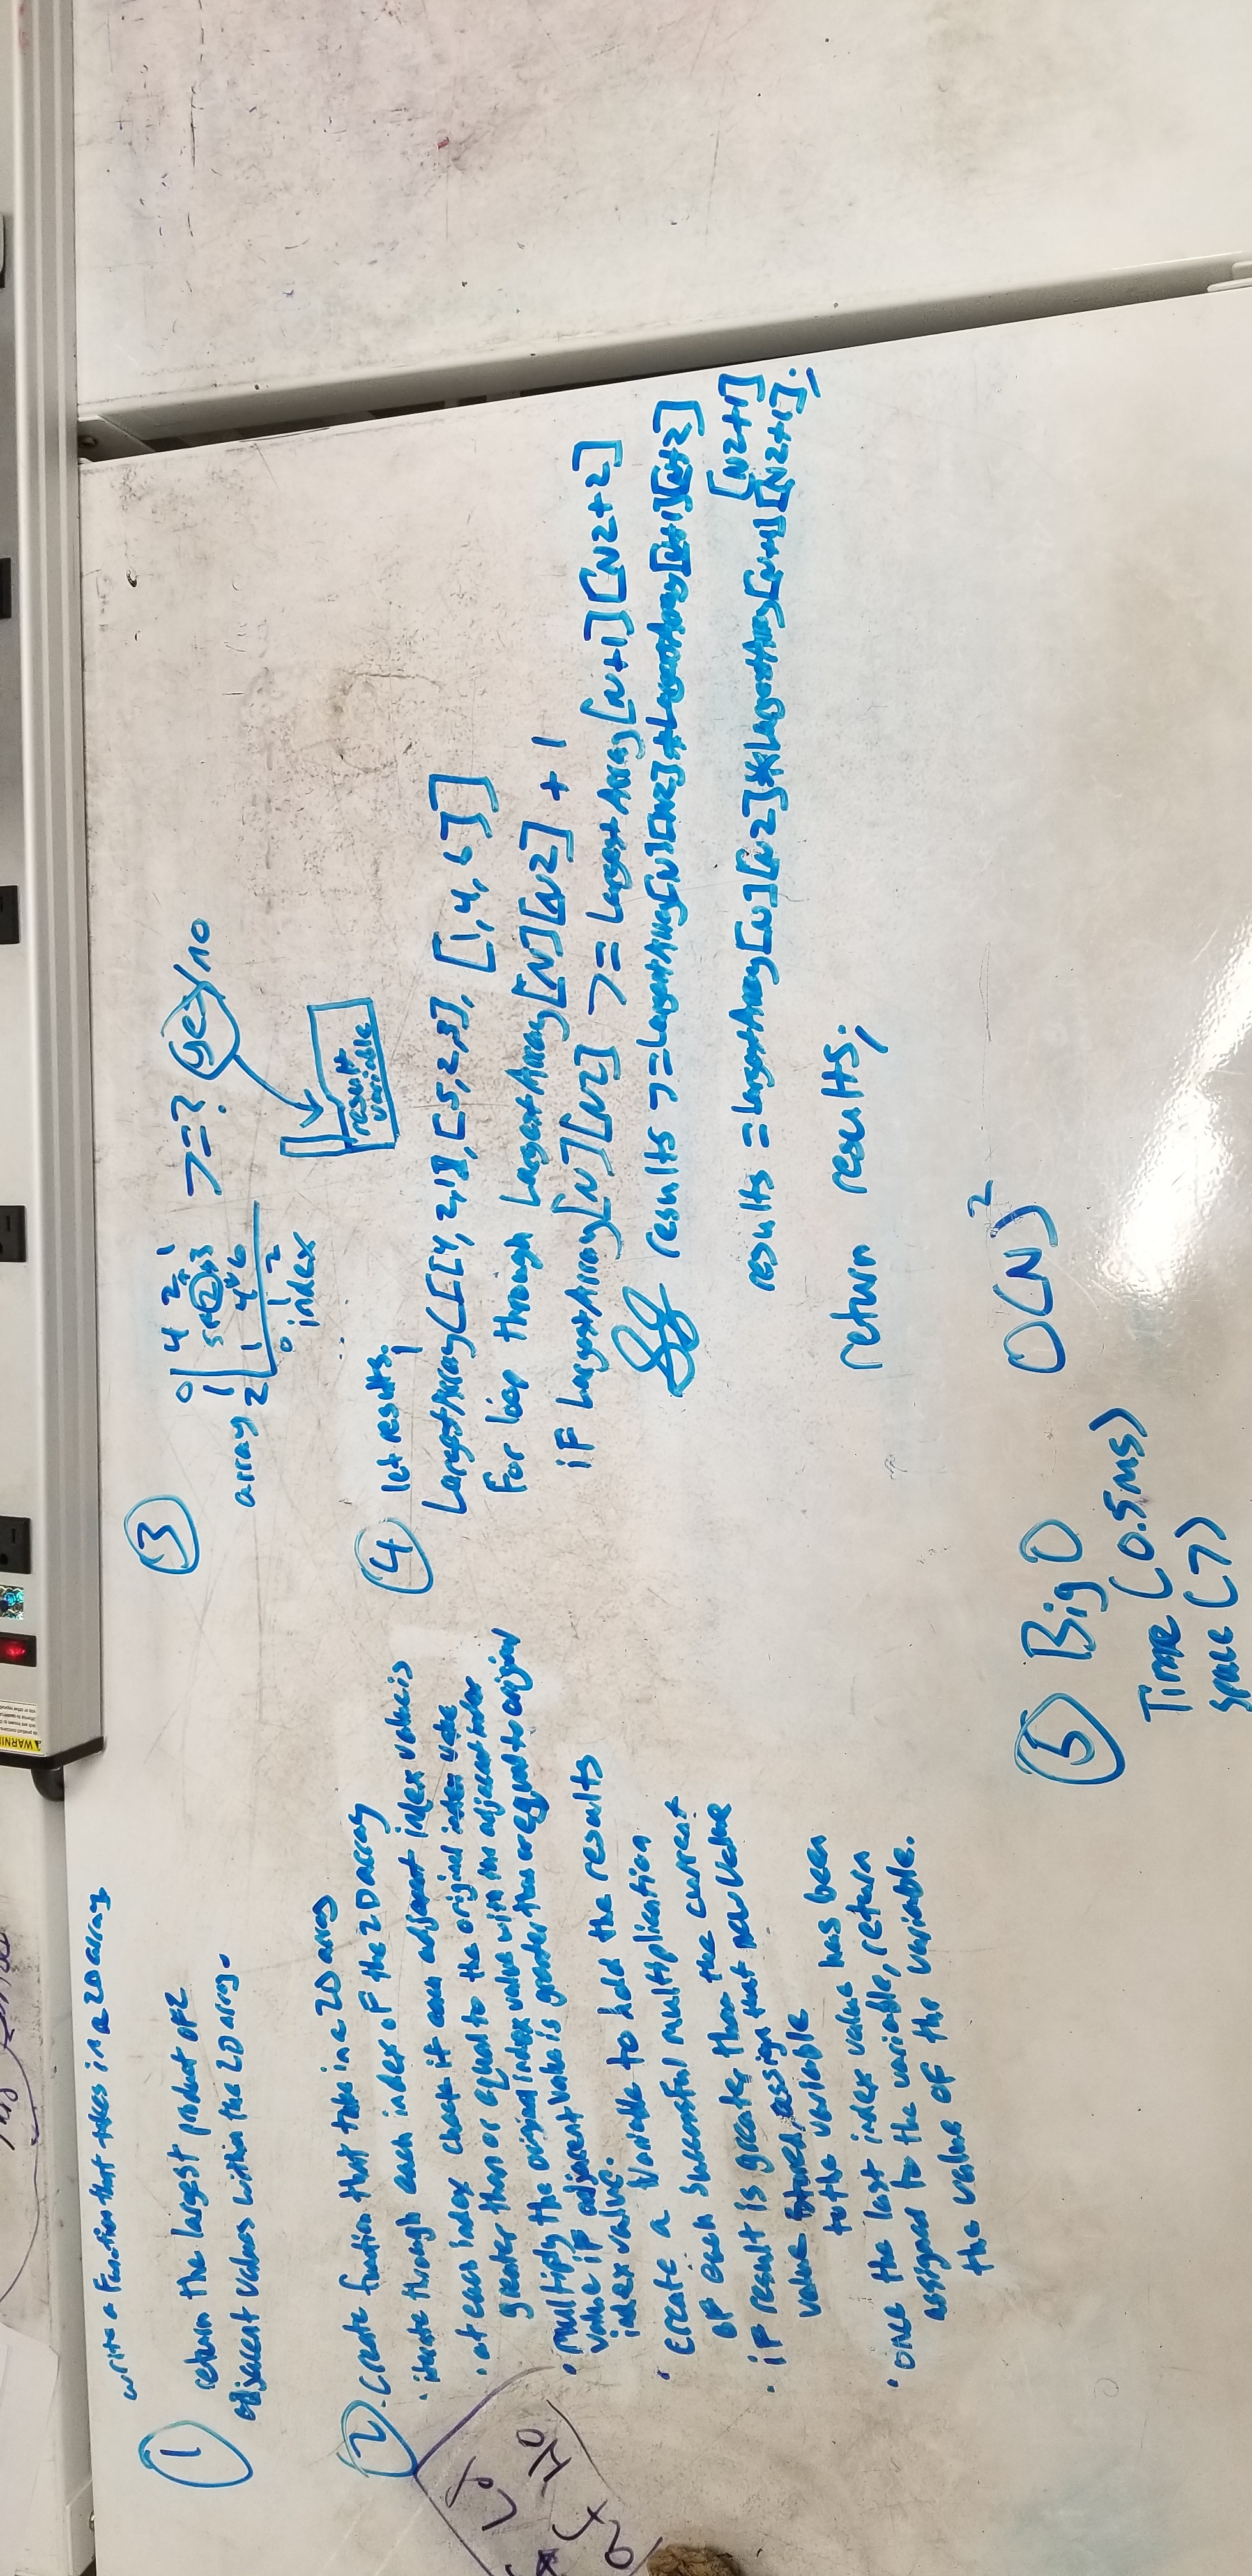 1
write a function that takes in a 2D array
return the largest product of 2
adjacent values within the 2D array.
2
· create function that take in a 2D array
· iterate through each index of the 2D array
· at each index check if each adjacent index value is
greater than or equal to the original index value
multiply the original index value with the adjacent index
value if adjacent value is greater than or equal to origin
index value.
· create a variable to hold the results
of each successful multiplication
· if result is greater than the current
value stored, assign that new value
to the variable
· once the last index value has been
assigned to the variable, return
the value of the variable.
3
array
0 4 2 1
1 5 2 3
2 1 4 6
0 1 2
index
>=? yes/no
result
variable
4
let results;
LargestArray[[4,2,1],[5,2,3],[1,4,6]]
For loop through LargestArray[N][N2] + 1
if LargestArray[N][N2] >= LargestArray[N+1][N2+2]
results >= LargestArray[N][N2] * LargestArray[N+1][N+2]
results = LargestArray[N][N2] * LargestArray[N+1][N2+1];
[N2+1]
return results;
5
Big O
O(N)²
Time (0.5ms)
space (7)
WARNIN